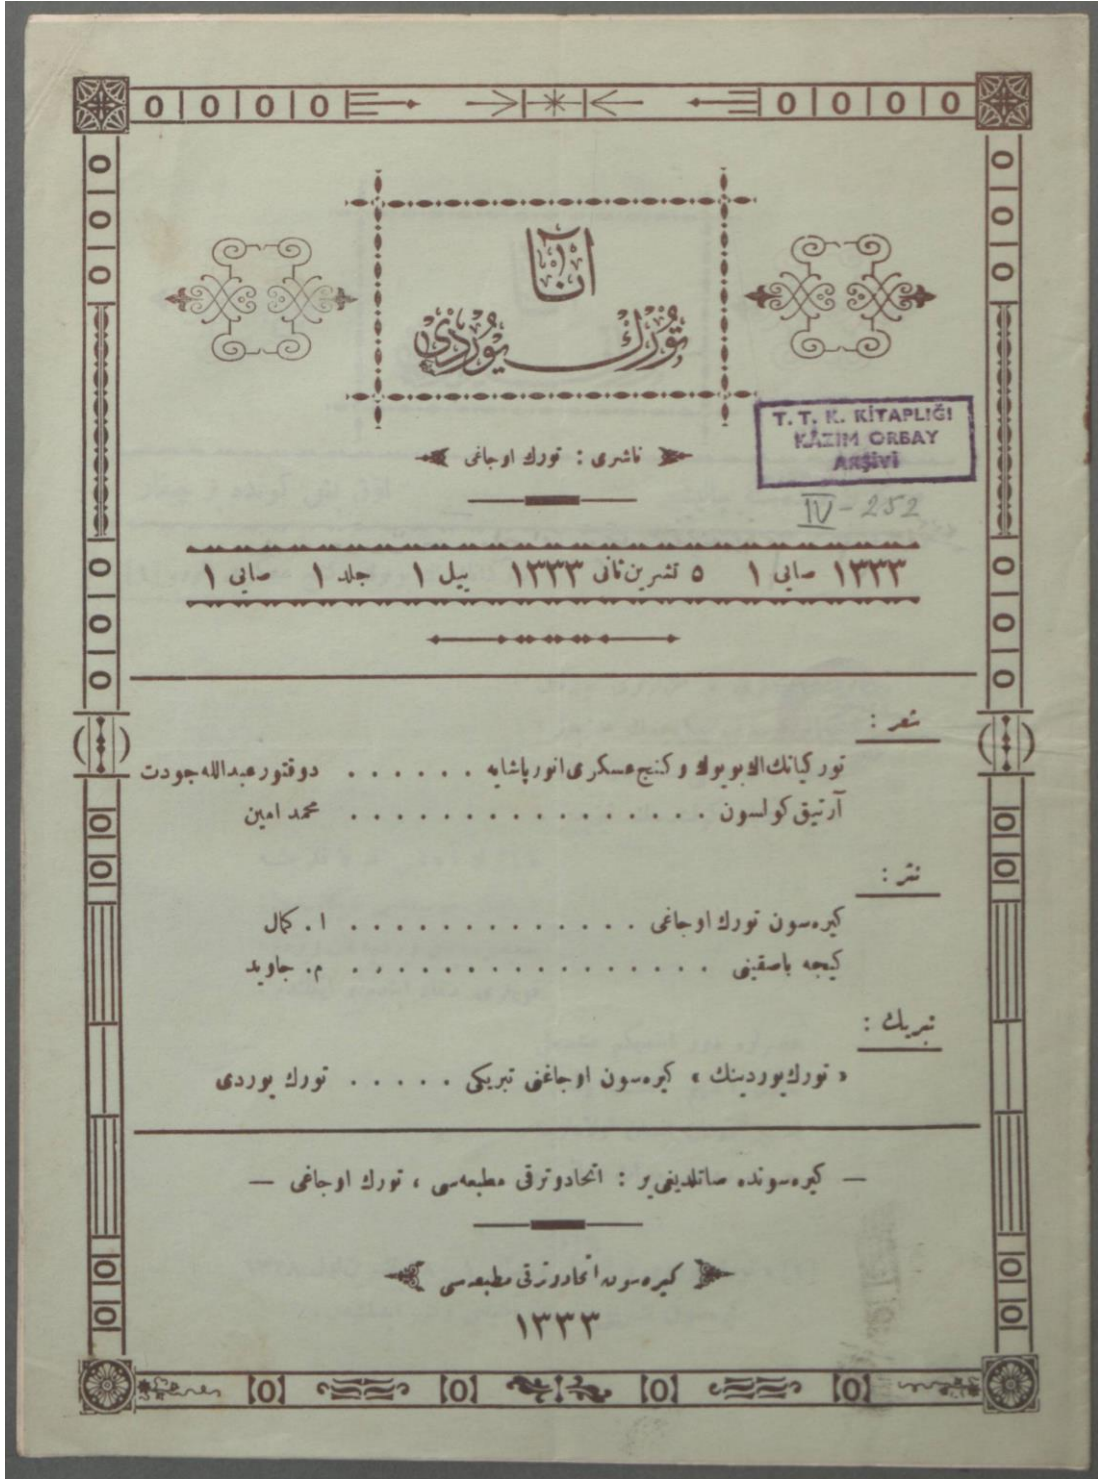 آنا
تورك يوردى
ناشرى : تورك اوجاغى
T. T. K. KİTAPLIĞI
KÂZIM ORBAY
ARŞİVİ
IV - 252
١٣٣٣ صايى ١ ٥ تشرين ثانى ١٣٣٣ ييل ١ جلد ١ صايى ١
شعر :
توركيانك اك بويوك و كنج عسكرى انور پاشايه . . . . . . دوقتور عبدالله جودت
آرتيق كولسون . . . . . . . . . . . . . . . . محمد امين
نثر :
كيره سون تورك اوجاغى . . . . . . . . . . . . . ا . كمال
كيجه باصقينى . . . . . . . . . . . . . . . . م . جاويد
تبريك :
« تورك يوردينك » كيره سون اوجاغنى تبريكى . . . . . تورك يوردى
— كيره سونده صاتلديغى ير : اتحاد و ترقى مطبعه سى ، تورك اوجاغى —
كيره سون اتحاد و ترقى مطبعه سى
١٣٣٣